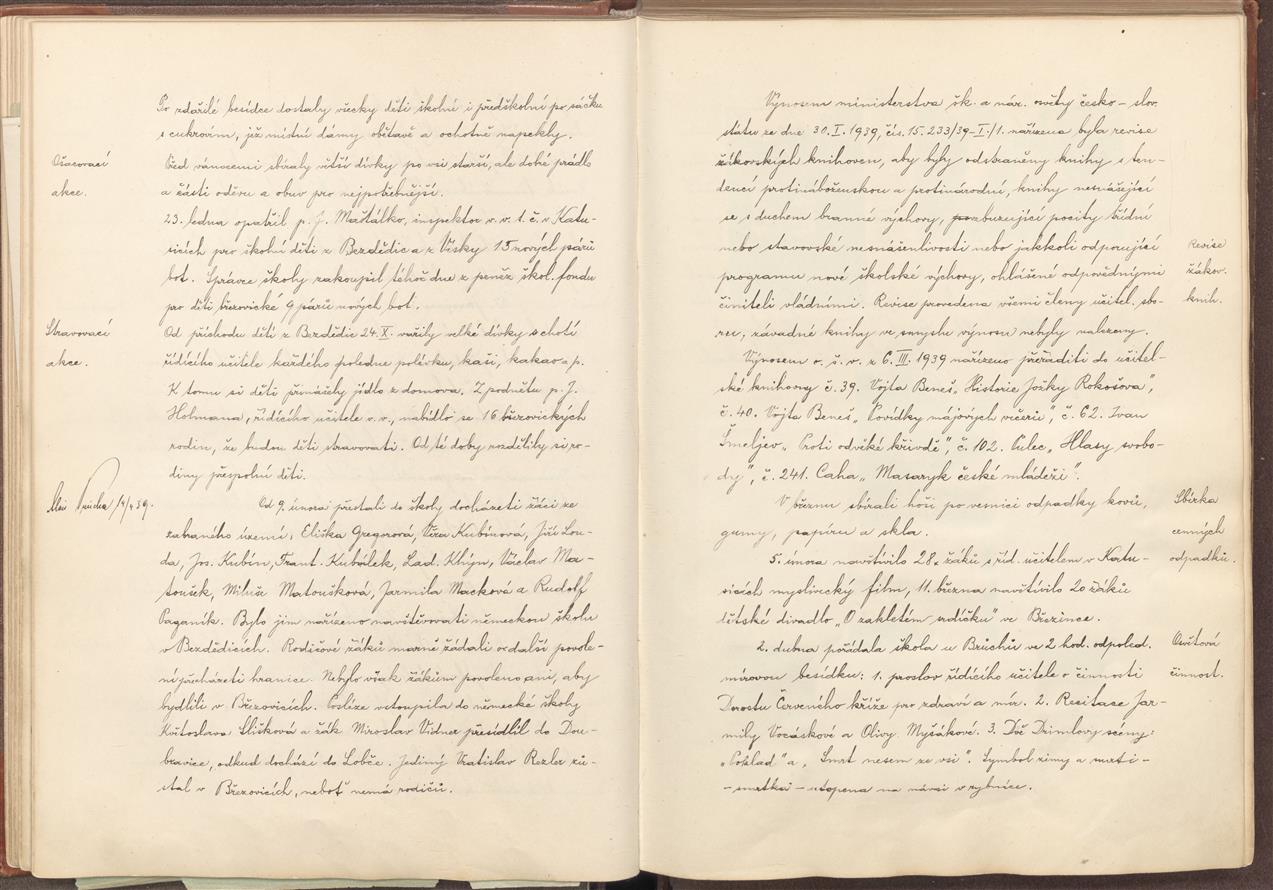 Po zdařilé besídce dostaly všecky děti školní i předškolní po sáčku
s cukrovím, jež místní dámy obětavě a ochotně napekly.
Ošacovací
akce.
Před vánocemi sbíraly větší dívky po vsi starší, ale dobré prádlo
a části oděvu a obuv pro nejpotřebnější.
23. ledna opatřil p. J. Maštálko, inspektor v. v. t. č. v Katu-
sicích pro školní děti z Bezdědic a z Vísky 15 nových párů
bot. Správce školy zakoupil téhož dne z peněz škol. fondu
pro děti březovické 9 párů nových bot.
Stravovací
akce.
Od příchodu dětí z Bezdědic 24. X. vařily velké dívky s chotí
řídícího učitele každého poledne polévku, kaši, kakao a p.
K tomu si děti přinášely jídlo z domova. Z podnětu p. J.
Hofmana, řídícího učitele v. v., nabídlo se 16 březovických
rodin, že budou děti stravovati. Od té doby rozdělily si ro-
diny přespolní děti.
39.
Od 9. února přestali do školy docházeti žáci ze
zabraného území: Eliška Gregorová, Věra Kubínová, Jiří Lou-
da, Jos. Kubín, Frant. Kubálek, Lad. Khýn, Václav Ma-
toušek, Miluš Matoušková, Jarmila Macková a Rudolf
Paganík. Bylo jim nařízeno navštěvovati německou školu
v Bezdědicích. Rodičové žáků marně žádali o další povole-
ní přecházeti hranice. Nebylo však žákům povoleno ani, aby
bydlili v Březovicích. Posléze vstoupila do německé školy
Květoslava Slišková a žák Miroslav Vidner přesídlil do Dou-
bravice, odkud dochází do Lobče. Jediný Vratislav Rezler zů-
stal v Březovicích, neboť nemá rodičů.
Výnosem ministerstva šk. a nár. osvěty česko-slov.
státu ze dne 30. I. 1939, čís. 15.233/39-I./1. nařízena byla revise
žákovských knihoven, aby byly odstraněny knihy s ten-
dencí protináboženskou a protinárodní, knihy nesnášející
se s duchem branné výchovy, pobuzující pocity třídní
nebo stavovské nesnášenlivosti nebo jakkoli odporující
programu nové školské výchovy, ohlášené odpovědnými
činiteli vládními. Revise provedena všemi členy učitel. sbo-
ru, závadné knihy ve smyslu výnosu nebyly nalezeny.
Revise
žákov.
knih.
Výnosem o. š. v. z 6. III. 1939 nařízeno přeřaditi do učitel-
ské knihovny č. 39. Vojta Beneš „Historie Jožky Rokošova",
č. 40. Vojta Beneš „Povídky májových večerů", č. 62. Ivan
Šmeljev „Proti odvěké křivdě", č. 102. Culec „Hlasy svobo-
dy", č. 241. Caha „Masaryk české mládeži".
V březnu sbírali hoši po vesnici odpadky kovů,
gumy, papíru a skla.
Sbírka
cenných
odpadků.
5. února navštívilo 28 žáků s říd. učitelem v Katu-
sicích myslivecký film, 11. března navštívilo 20 žáků
dětské divadlo „O zakletém srdíčku" ve Březince.
2. dubna pořádala škola u Brůchů ve 2 hod. odpoled.
mírovou besídku: 1. proslov řídícího učitele o činnosti
Dorostu Červeného kříže pro zdraví a mír. 2. Recitace Jar-
mily Vocáskové a Olivy Myšákové. 3. Dvě Drimlovy scény:
„Poklad" a „Smrt nesem ze vsi". Symbol zimy a smrti -
- smrtka - utopena na návsi v rybníce.
Osvětová
činnost.